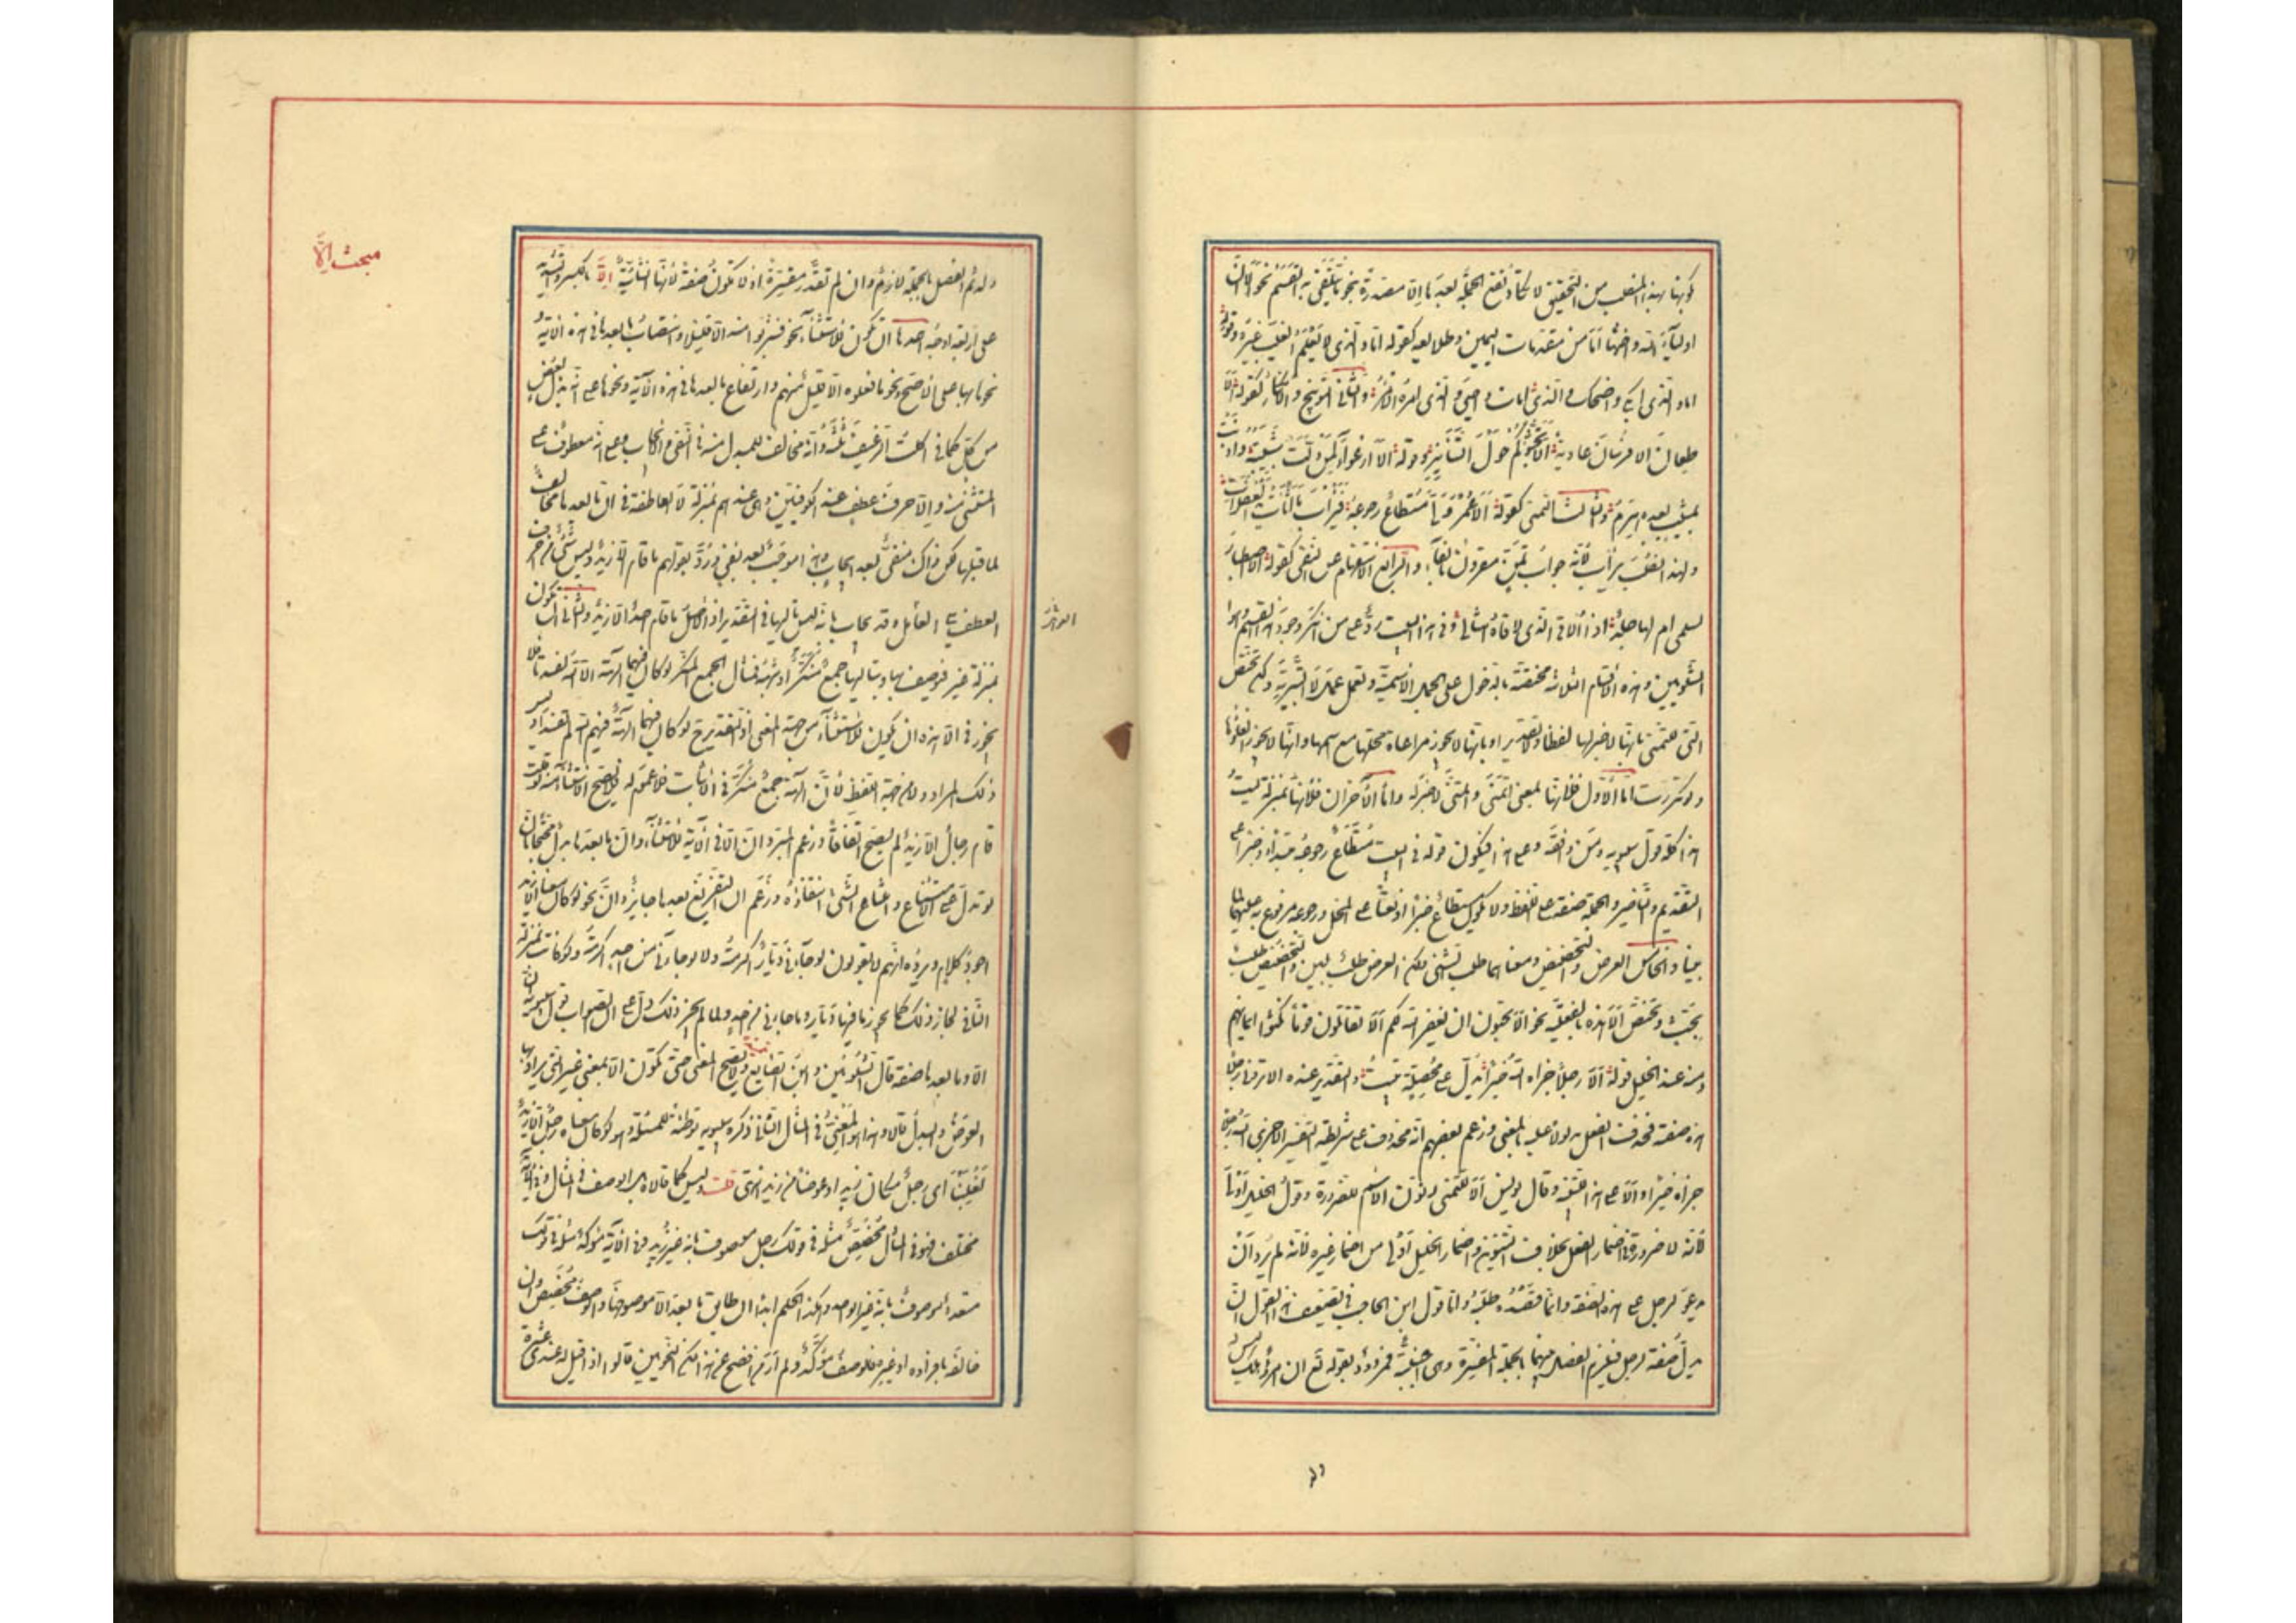 كونها بهذا المنصب من التحقيق لا تكاد تقع الجملة بعدها الا مصدرة بنحو ما يتلقى به القسم نحو الا ان
اولياء الله واختها اما من مقدمات اليمين وطلايعه كقوله اما والذى لا يعلم الغيب غيره وقوله
اما والذى ابكى واضحك والذى امات واحيى والذى امره الامر والثانى التوبيخ والانكار كقوله الا
طعان الا فرسان عادية الا تجشؤكم حول التنانير وقوله الا ارعواء لمن ولت شبيبته واذنت
بمشيب بعده هرم والثالث التمنى كقوله الا عمر ولى مستطاع رجوعه فيراب ما اثأت يد الغفلات
ولهذا نصب يراب لانه جواب تمن مقرون بالفاء والرابع الاستفهام عن النفى كقوله الا اصطبار
لسلمى ام لها جلد اذا الاقى الذى لاقاه امثالى وفى هذا البيت رد على من انكر وجود هذا القسم وهو
الشلوبين وهذه الاقسام الثلاثة مختصة بالدخول على الجملة الاسمية وتعمل عمل لا التبرية ولكن تختص
التى للتمنى بانها لا خبر لها لفظا ولا تقديرا وبانها لا يجوز مراعاة محلها مع اسمها وانها لا يجوز الغاؤها
ولو تكررت اما الاول فلانها بمعنى اتمنى واتمنى لا خبر له واما الاخران فلانها بمنزلة ليت
هذا كله قول سيبويه ومن وافقه وعلى هذا فيكون قوله فى البيت مستطاع رجوعه مبتدأ وخبرا على
التقديم والتاخير والجملة صفة على اللفظ ولا يكون مستطاع خبرا او نعتا على المحل ورجوعه مرفوع به عليهما لما
بينا والخامس العرض والتحضيض ومعناهما طلب الشىء لكن العرض طلب بلين والتحضيض طلب
بحث وتختص الا هذه بالفعلية نحو الا تحبون ان يغفر الله لكم الا تقاتلون قوما نكثوا ايمانهم
ومنه عند الخليل قوله الا رجلا جزاه الله خيرا يدل على محصلة تبيت والتقدير عنده الا ترونى رجلا
هذه صفته فحذف الفعل مدلولا عليه بالمعنى وزعم بعضهم انه محذوف على شريطة التفسير الا جزى الله رجلا
جزاه خيرا والا على هذا للتنبيه وقال يونس الا للتمنى ونون الاسم للضرورة وقول الخليل اولى
لانه لا ضرورة فى اضمار الفعل بخلاف التنوين واضمار الخليل اولى من اضمار غيره لانه لم يرد ان
يدعو لرجل على هذه الصفة وانما قصده طلبه واما قول ابن الحاجب فى تضعيف هذا القول ان
يدل صفة لرجل فيلزم الفصل بينهما بالجملة المفسرة وهى اجنبية فمردود بقوله تع ان امرؤ هلك ليس له
ولد ثم الفصل بالجملة لازم وان لم تقدر مفسرة اذ لا تكون صفة لانها انشائية الا بالكسر والتشديد
على اربعة اوجه احدها ان تكون للاستثناء نحو فشربوا منه الا قليلا وانتصاب ما بعدها فى هذه الاية و
نحوها بها على الاصح ونحو ما فعلوه الا قليل منهم وارتفاع ما بعدها فى هذه الاية ونحوها على انه بدل بعض
من كل كما فى اكلت الرغيف ثلثه وانه مخالف للمبدل منه فى النفى والايجاب وعلى انه معطوف على
المستثنى منه والا حرف عطف عند الكوفيين وهى عندهم بمنزلة لا العاطفة فى ان ما بعدها مخالف
لما قبلها لكن ذاك منفى بعد ايجاب وهذا موجب بعد نفى ورد بقولهم ما قام الا زيد وليس شىء من احرف
العطف يلى العامل وقد يجاب بانه ليس تاليها فى التقدير اذ الاصل ما قام احد الا زيد والثانى ان تكون
بمنزلة غير فيوصف بها وبتاليها جمع منكر او شبهه فمثال الجمع المنكر لو كان فيهما الهة الا الله لفسدتا فلا
يجوز فى الا هذه ان تكون للاستثناء من جهة المعنى اذ التقدير ح لو كان فيهما الهة فيهم الله لم تفسدا وليس
ذلك المراد ولا من جهة اللفظ لان الهة جمع منكر فى الاثبات فلا عموم له فلا يصح الاستثناء منه لو قلت
قام رجال الا زيد لم يصح اتفاقا وزعم المبرد ان الا فى الاية للاستثناء وان ما بعدها بدل محتجا بان
لو تدل على الامتناع وامتناع الشىء انتفاؤه وزعم ان التفريغ بعدها جايز وان نحو لو كان معنا الا زيد
اجود كلام ويرده انهم لا يقولون لو جاءنى ديار اكرمته ولا لو جاءنى من احد اكرمته ولو كانت بمنزلة
النافى لجاز ذلك كما يجوز ما فيها ديار وما جاءنى من احد ولما لم يجز ذلك دل على ان الصواب قول سيبويه ان
الا وما بعدها صفة قال الشلوبين وابن الضايع ولا يصح المعنى حتى تكون الا بمعنى غير التى يراد بها
العوض والبدل قالا وهذا هو المعنى فى المثال الذى ذكره سيبويه توطئة للمسئلة وهو لو كان معنا رجل الا زيد
لغلبنا اى رجل مكان زيد او عوضا من زيد انتهى قلت وليس كما قالاه بل الوصف فى المثال وفى الاية
مختلف فهو فى المثال مخصص مثله فى قولك رجل موصوف بانه غير زيد وفى الاية مؤكد مثله فى قولك
متعدد موصوف بانه غير الواحد وهكذا الحكم ابدا ان طابق ما بعد الا موصوفها فالوصف مخصص وان
خالفه بافراد او غيره فالوصف مؤكد ولم ار من افصح عن هذا لكن النحويين قالوا اذا قيل له عندى عشرة
مبحث الا